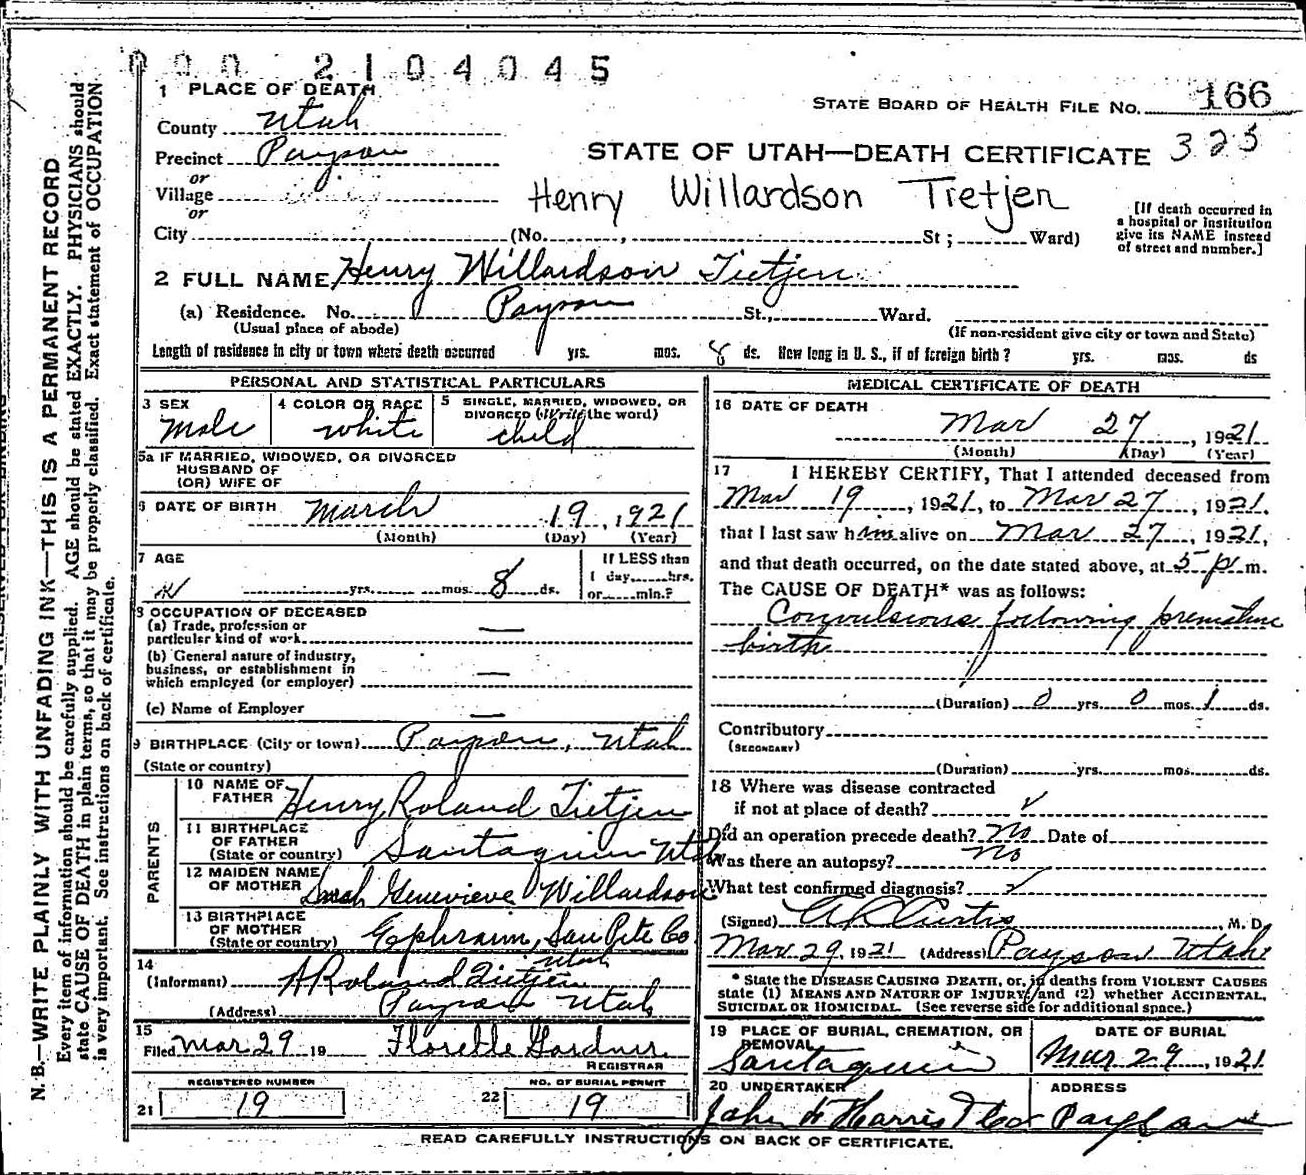 000 2104045
1 PLACE OF DEATH
STATE BOARD OF HEALTH FILE No. 166
County Utah
325
Precinct Payson
STATE OF UTAH—DEATH CERTIFICATE
or
Village
Henry Willardson Tietjen
or
[If death occurred in a hospital or institution give its NAME instead of street and number.]
City (No. , St ; Ward)
2 FULL NAME Henry Willardson Tietjen
(a) Residence. No. Payson St., Ward.
(Usual place of abode) (If non-resident give city or town and State)
Length of residence in city or town where death occurred yrs. mos. 8 ds. How long in U. S., if of foreign birth ? yrs. mos. ds
PERSONAL AND STATISTICAL PARTICULARS
3 SEX
Male
4 COLOR OR RACE
white
5 SINGLE, MARRIED, WIDOWED, OR
DIVORCED (Write the word)
child
5a IF MARRIED, WIDOWED, OR DIVORCED
HUSBAND OF
(OR) WIFE OF
6 DATE OF BIRTH March 19, 1921
(Month) (Day) (Year)
7 AGE
yrs. mos. 8 ds.
If LESS than
1 day, hrs.
or min.?
8 OCCUPATION OF DECEASED
(a) Trade, profession or
particular kind of work —
(b) General nature of industry,
business, or establishment in
which employed (or employer) —
(c) Name of Employer —
9 BIRTHPLACE (City or town) Payson, Utah
(State or country)
PARENTS
10 NAME OF
FATHER Henry Roland Tietjen
11 BIRTHPLACE
OF FATHER
(State or country) Santaquin Utah
12 MAIDEN NAME
OF MOTHER Sarah Genevieve Willardson
13 BIRTHPLACE
OF MOTHER
(State or country) Ephraim, San Pete Co
Utah
14
(Informant) H Roland Tietjen
(Address) Payson Utah
15
Filed Mar 29 19 Florelle Gardner
REGISTRAR
REGISTERED NUMBER
21 19
NO. OF BURIAL PERMIT
22 19
MEDICAL CERTIFICATE OF DEATH
16 DATE OF DEATH
Mar 27, 1921
(Month) (Day) (Year)
17 I HEREBY CERTIFY, That I attended deceased from
Mar 19, 1921, to Mar 27, 1921,
that I last saw him alive on Mar 27, 1921,
and that death occurred, on the date stated above, at 5 p m.
The CAUSE OF DEATH* was as follows:
Convulsions following premature
birth
(Duration) 0 yrs. 0 mos. 1 ds.
Contributory
(SECONDARY)
(Duration) yrs. mos. ds.
18 Where was disease contracted
if not at place of death? ✓
Did an operation precede death? No Date of
Was there an autopsy? No
What test confirmed diagnosis? ✓
(Signed) Curtis, M. D.
Mar 29, 1921 (Address) Payson Utah
* State the DISEASE CAUSING DEATH, or, in deaths from VIOLENT CAUSES
state (1) MEANS AND NATURE OF INJURY, and (2) whether ACCIDENTAL,
SUICIDAL OR HOMICIDAL. (See reverse side for additional space.)
19 PLACE OF BURIAL, CREMATION, OR
REMOVAL
Santaquin
DATE OF BURIAL
Mar 29, 1921
20 UNDERTAKER
John Harris
ADDRESS
Payson
READ CAREFULLY INSTRUCTIONS ON BACK OF CERTIFICATE.
N. B.—WRITE PLAINLY WITH UNFADING INK—THIS IS A PERMANENT RECORD
Every item of information should be carefully supplied. AGE should be stated EXACTLY. PHYSICIANS should
state CAUSE OF DEATH in plain terms, so that it may be properly classified. Exact statement of OCCUPATION
is very important. See instructions on back of certificate.